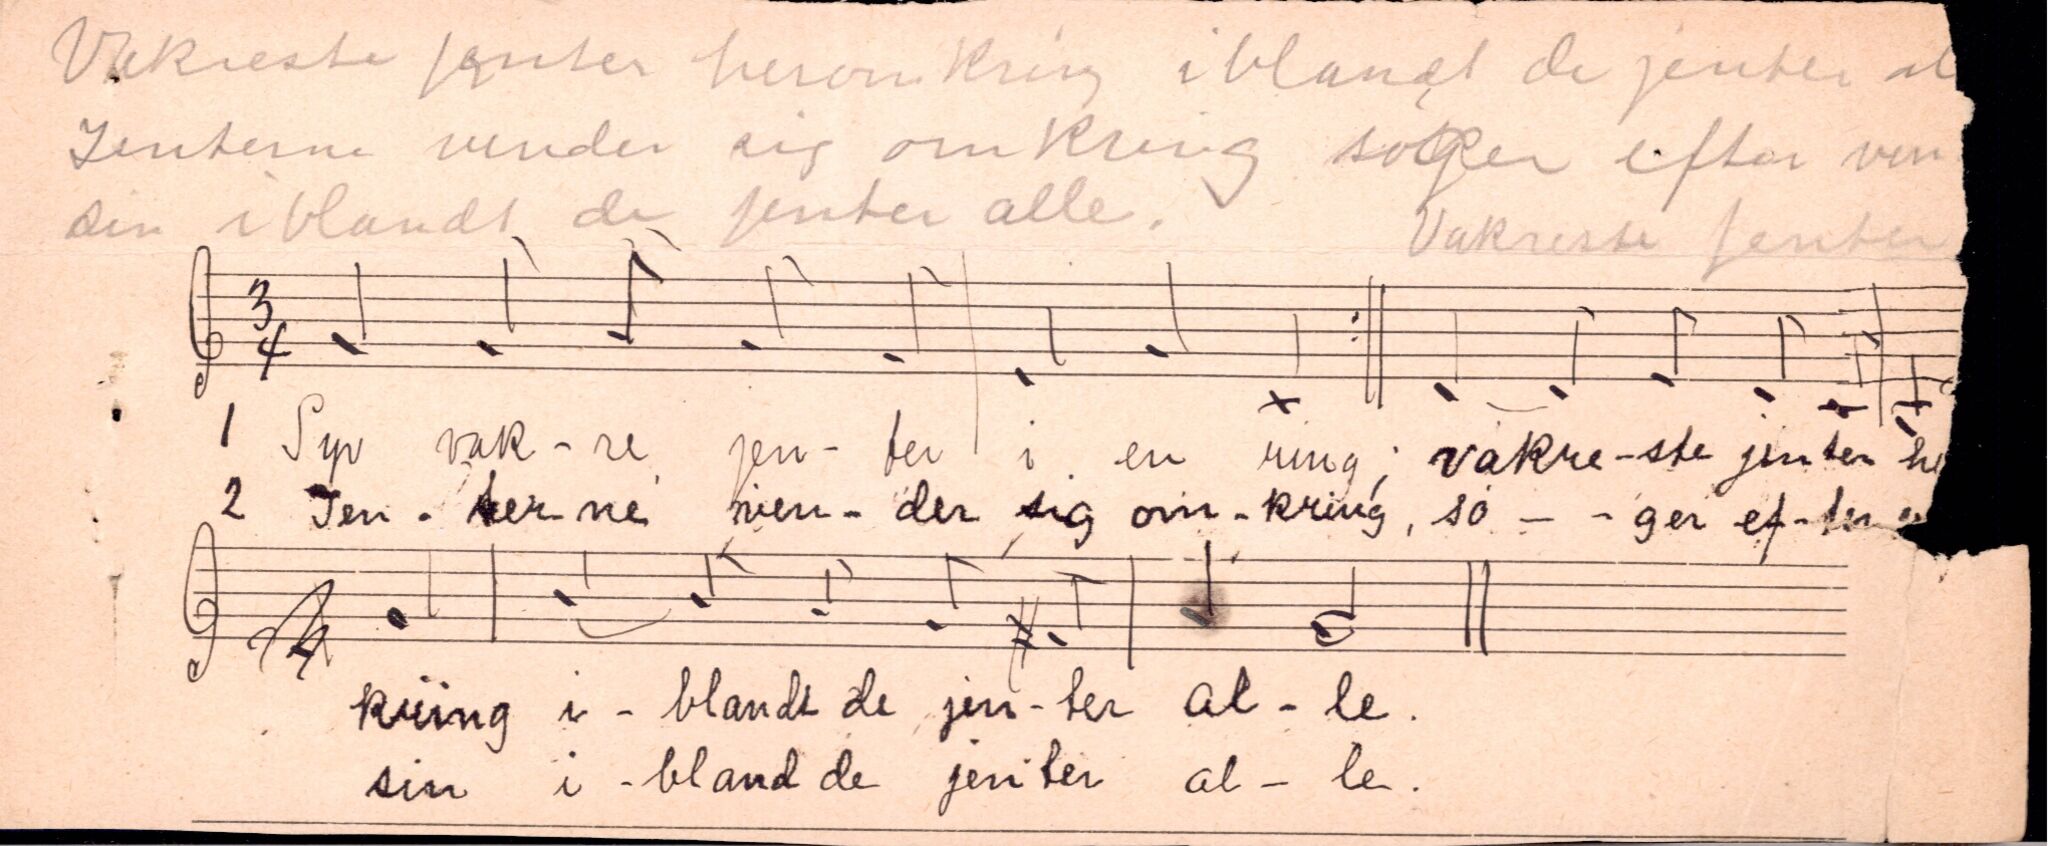 Vakreste jenter heromkring iblandt de jenter al
Jenterne vender sig omkring søger efter ven
sin iblandt de jenter alle.
Vakreste jenter
3
4
1 Syv vak-re jen-ter i en ring; vakre-ste jenter he
2 Jen-ter-ne ven-der sig om-kring, sø--ger ef-ter
kring i-blandt de jen-ter al-le.
sin i-bland de jenter al-le.